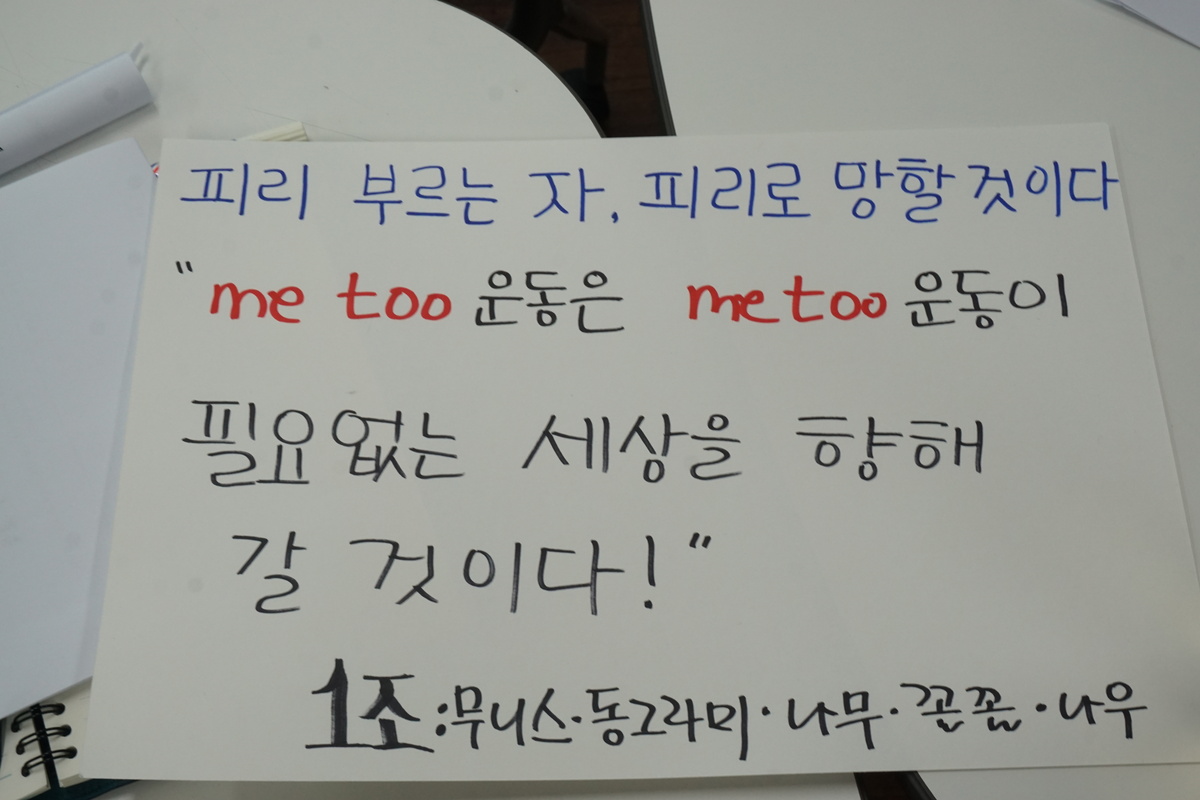 피리 부르는 자, 피리로 망할 것이다
"me too 운동은 me too 운동이
필요없는 세상을 향해
갈 것이다!"
1조:무니스·동그라미·나무·꼼꼼·나우